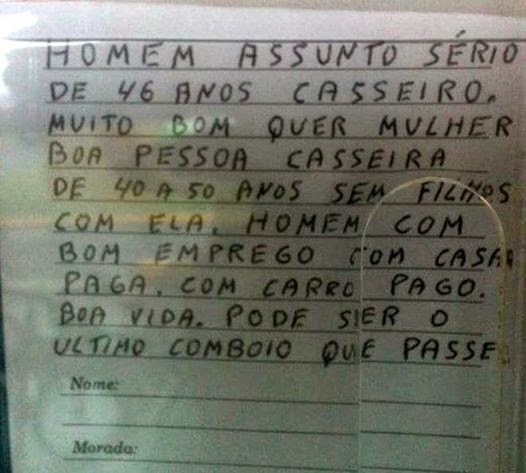 HOMEM ASSUNTO SÉRIO
DE 46 ANOS CASSEIRO.
MUITO BOM QUER MULHER
BOA PESSOA CASSEIRA
DE 40 A 50 ANOS SEM FILHOS
COM ELA. HOMEM COM
BOM EMPREGO COM CASA
PAGA. COM CARRO PAGO.
BOA VIDA. PODE SER O
ULTIMO COMBOIO QUE PASSE.
Nome:
Morada: